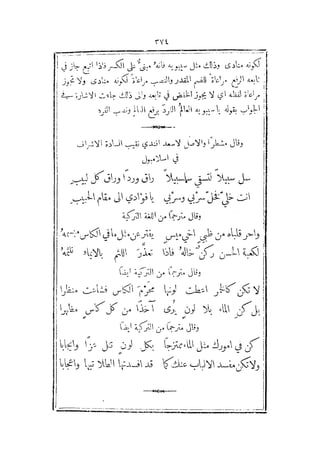 ٣٧٤
لكونه منادى وذلك مثل سيبويه فانه مبنى على الكسر فاذا اتبع جاز في
تابعه الرفع مراعاة للضم المقدر والنصب مراعاة لكونه منادى ولا يجوز
مراعاة لفظه اى لا يجوز الخفض في تابعه والى ذلك جاءت الاشارة في
الجواب بقوله يا سيبويه العالم الفرد برفع العالم ونصب الفرد
وقال مشطرا والاصل لاسعد افندي نقيب السادة الاشراف
في اسلامبول
سل سبيلاً لتسقي سلسبيلاً راق وردا وراق كل لبيب
انت خلي فخل سربي وسر بي يا فؤادي الى مقام الحبيب
وقال مترجما من اللغة التركية
واحر قلباه من ظبي يفتر عن مثل ما في الكاس مبسمه
لكعبة الحسن ركن خاله فاذا تعذر اللثم بالايماء نلثمه
وقال مترجما من التركية ايضا
لا تكن كالخمر اعطت لونها مجرم الكاس فشانت منظرا
بل كن الماء بلا لون يرى آخذا من كل كاس مظهرا
وقال مترجما من التركية ايضا
كن في امورك مثل الماء ممتزجا بكل لون تنل عزا وايجابا
ولا تكن مفسد الالباب عنك كما قد افسدتها الطلا تيها واعجابا